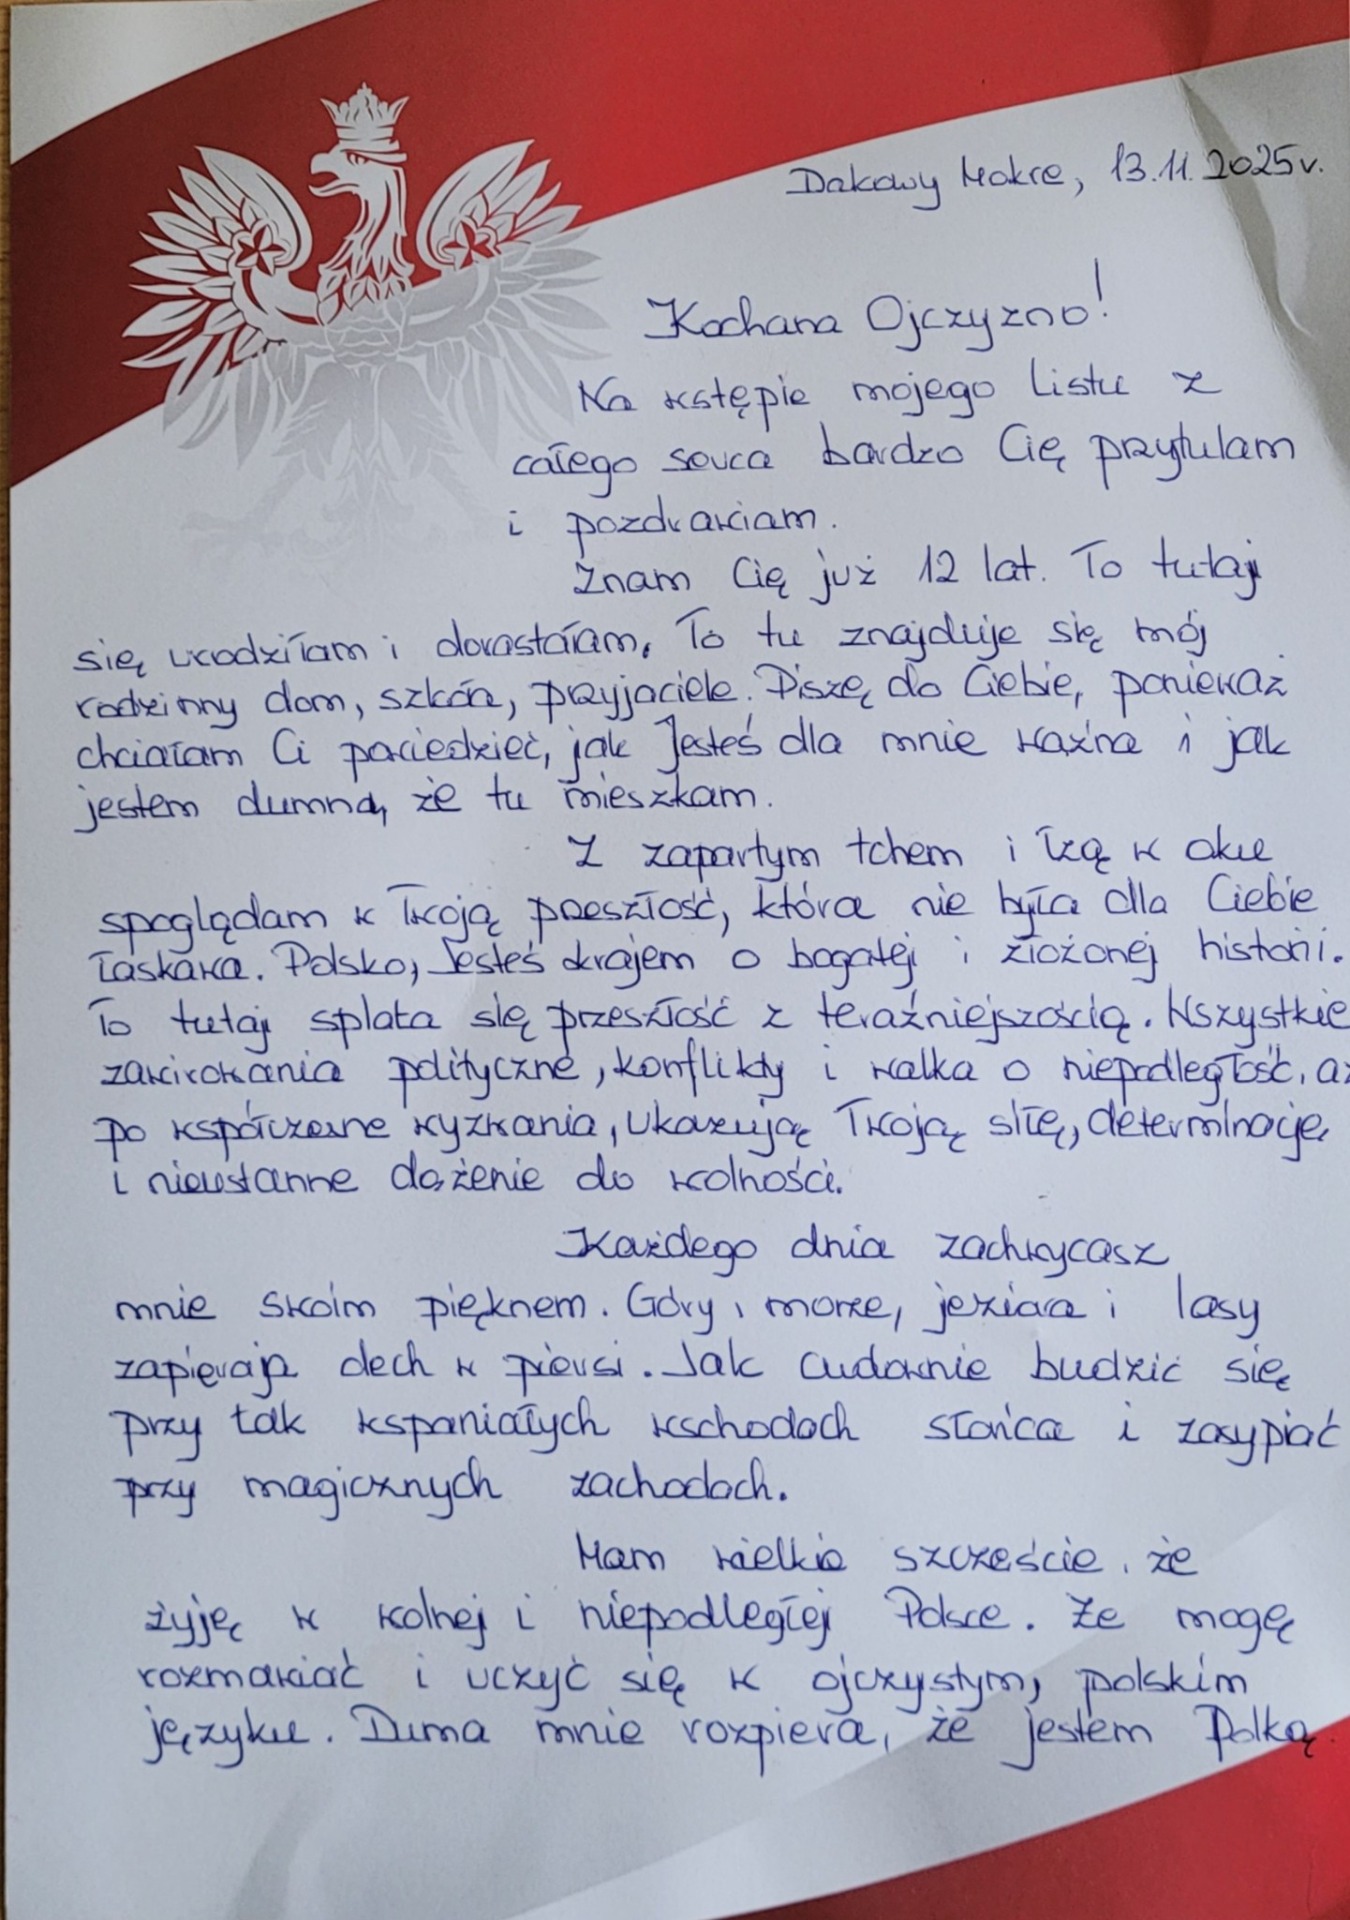 Dakowy Mokre, 13.11.2025r.
Kochana Ojczyzno!
Na wstępie mojego listu z
całego serca bardzo Cię przytulam
i pozdrawiam.
Znam Cię już 12 lat. To tutaj
się urodziłam i dorastałam. To tu znajduje się mój
rodzinny dom, szkoła, przyjaciele. Piszę do Ciebie, ponieważ
chciałam Ci powiedzieć, jak Jesteś dla mnie ważna i jak
jestem dumna, że tu mieszkam.
Z zapartym tchem i łzą w oku
spoglądam w Twoją przeszłość, która nie była dla Ciebie
łaskawa. Polsko, Jesteś krajem o bogatej i złożonej historii.
To tutaj splata się przeszłość z teraźniejszością. Wszystkie
zawirowania polityczne, konflikty i walka o niepodległość, aż
po współczesne wyzwania, ukazują Twoją siłę, determinację
i nieustanne dążenie do wolności.
Każdego dnia zachwycasz
mnie swoim pięknem. Góry, morze, jeziora i lasy
zapierają dech w piersi. Jak cudownie budzić się
przy tak wspaniałych wschodach słońca i zasypiać
przy magicznych zachodach.
Mam wielkie szczęście, że
żyję w wolnej i niepodległej Polsce. Że mogę
rozmawiać i uczyć się w ojczystym, polskim
języku. Duma mnie rozpiera, że jestem Polką.